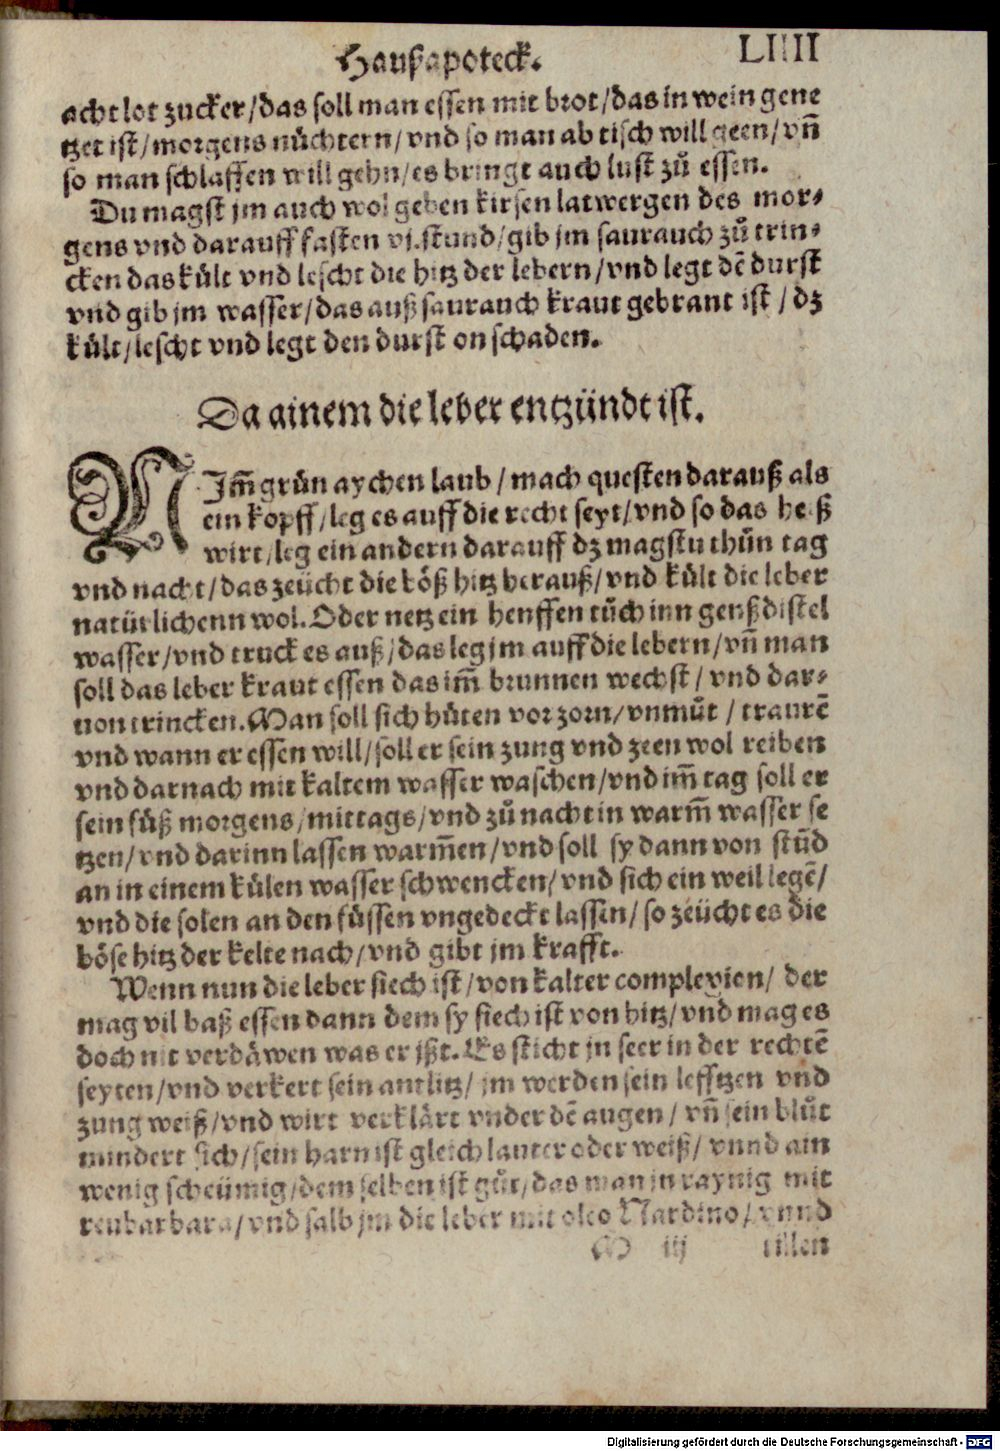 Haußapoteck. LIIII
acht lot zucker/das soll man essen mit brot/das in wein gene
tzet ist/morgens nüchtern/vnd so man ab tisch will geen/vñ
so man schlaffen will gehn/es bringt auch lust zů essen.
Du magst jm auch wol geben kirsen latwergen des mor⸗
gens vnd darauff fasten vj.stund/gib jm saurauch zů trin⸗
cken das kült vnd lescht die hitz der lebern/vnd legt dẽ durst
vnd gib jm wasser/das auß saurauch kraut gebrant ist / dz
kült/lescht vnd legt den durst on schaden.
Da ainem die leber entzündt ist.
NJm̃ grün aychen laub / mach questen darauß als
ein kopff/leg es auff die recht seyt/vnd so das heiß
wirt/leg ein andern darauff dz magstu thůn tag
vnd nacht/das zeücht die böß hitz herauß/vnd kült die leber
natürlichenn wol. Oder netz ein henffen tůch inn genßdistel
wasser/vnd truck es auß/das leg jm auff die lebern/vñ man
soll das leber kraut essen das im̃ brunnen wechst/ vnd dar⸗
uon trincken. Man soll sich hüten vor zorn/vnmůt / traurẽ
vnd wann er essen will/soll er sein zung vnd zeen wol reiben
vnd darnach mit kaltem wasser waschen/vnd im̃ tag soll er
sein füß morgens/mittags/vnd zů nacht in warm̃ wasser se
tzen/vnd darinn lassen warm̃en/vnd soll sy dann von stũd
an in einem külen wasser schwencken/vnd sich ein weil legẽ/
vnd die solen an den füssen vngedeckt lassen/so zeücht es die
böse hitz der kelte nach/vnd gibt jm krafft.
Wenn nun die leber siech ist/von kalter complexien/ der
mag vil baß essen dann dem sy siech ist von hitz/vnd mag es
doch nit verdäwen was er jßt. Es sticht jn seer in der rechtẽ
seyten/vnd verkert sein antlitz/ jm werden sein lefftzen vnd
zung weiß/vnd wirt verklärt vnder dẽ augen/ vñ sein blůt
mindert sich/sein harn ist gleich lauter oder weiß/ vnnd ain
wenig scheümig/dem selben ist gůt/das man jn raynig mit
reubarbara/vnd salb jm die leber mit oleo Nardino/ vnnd
M iij tillen
Digitalisierung gefördert durch die Deutsche Forschungsgemeinschaft - DFG